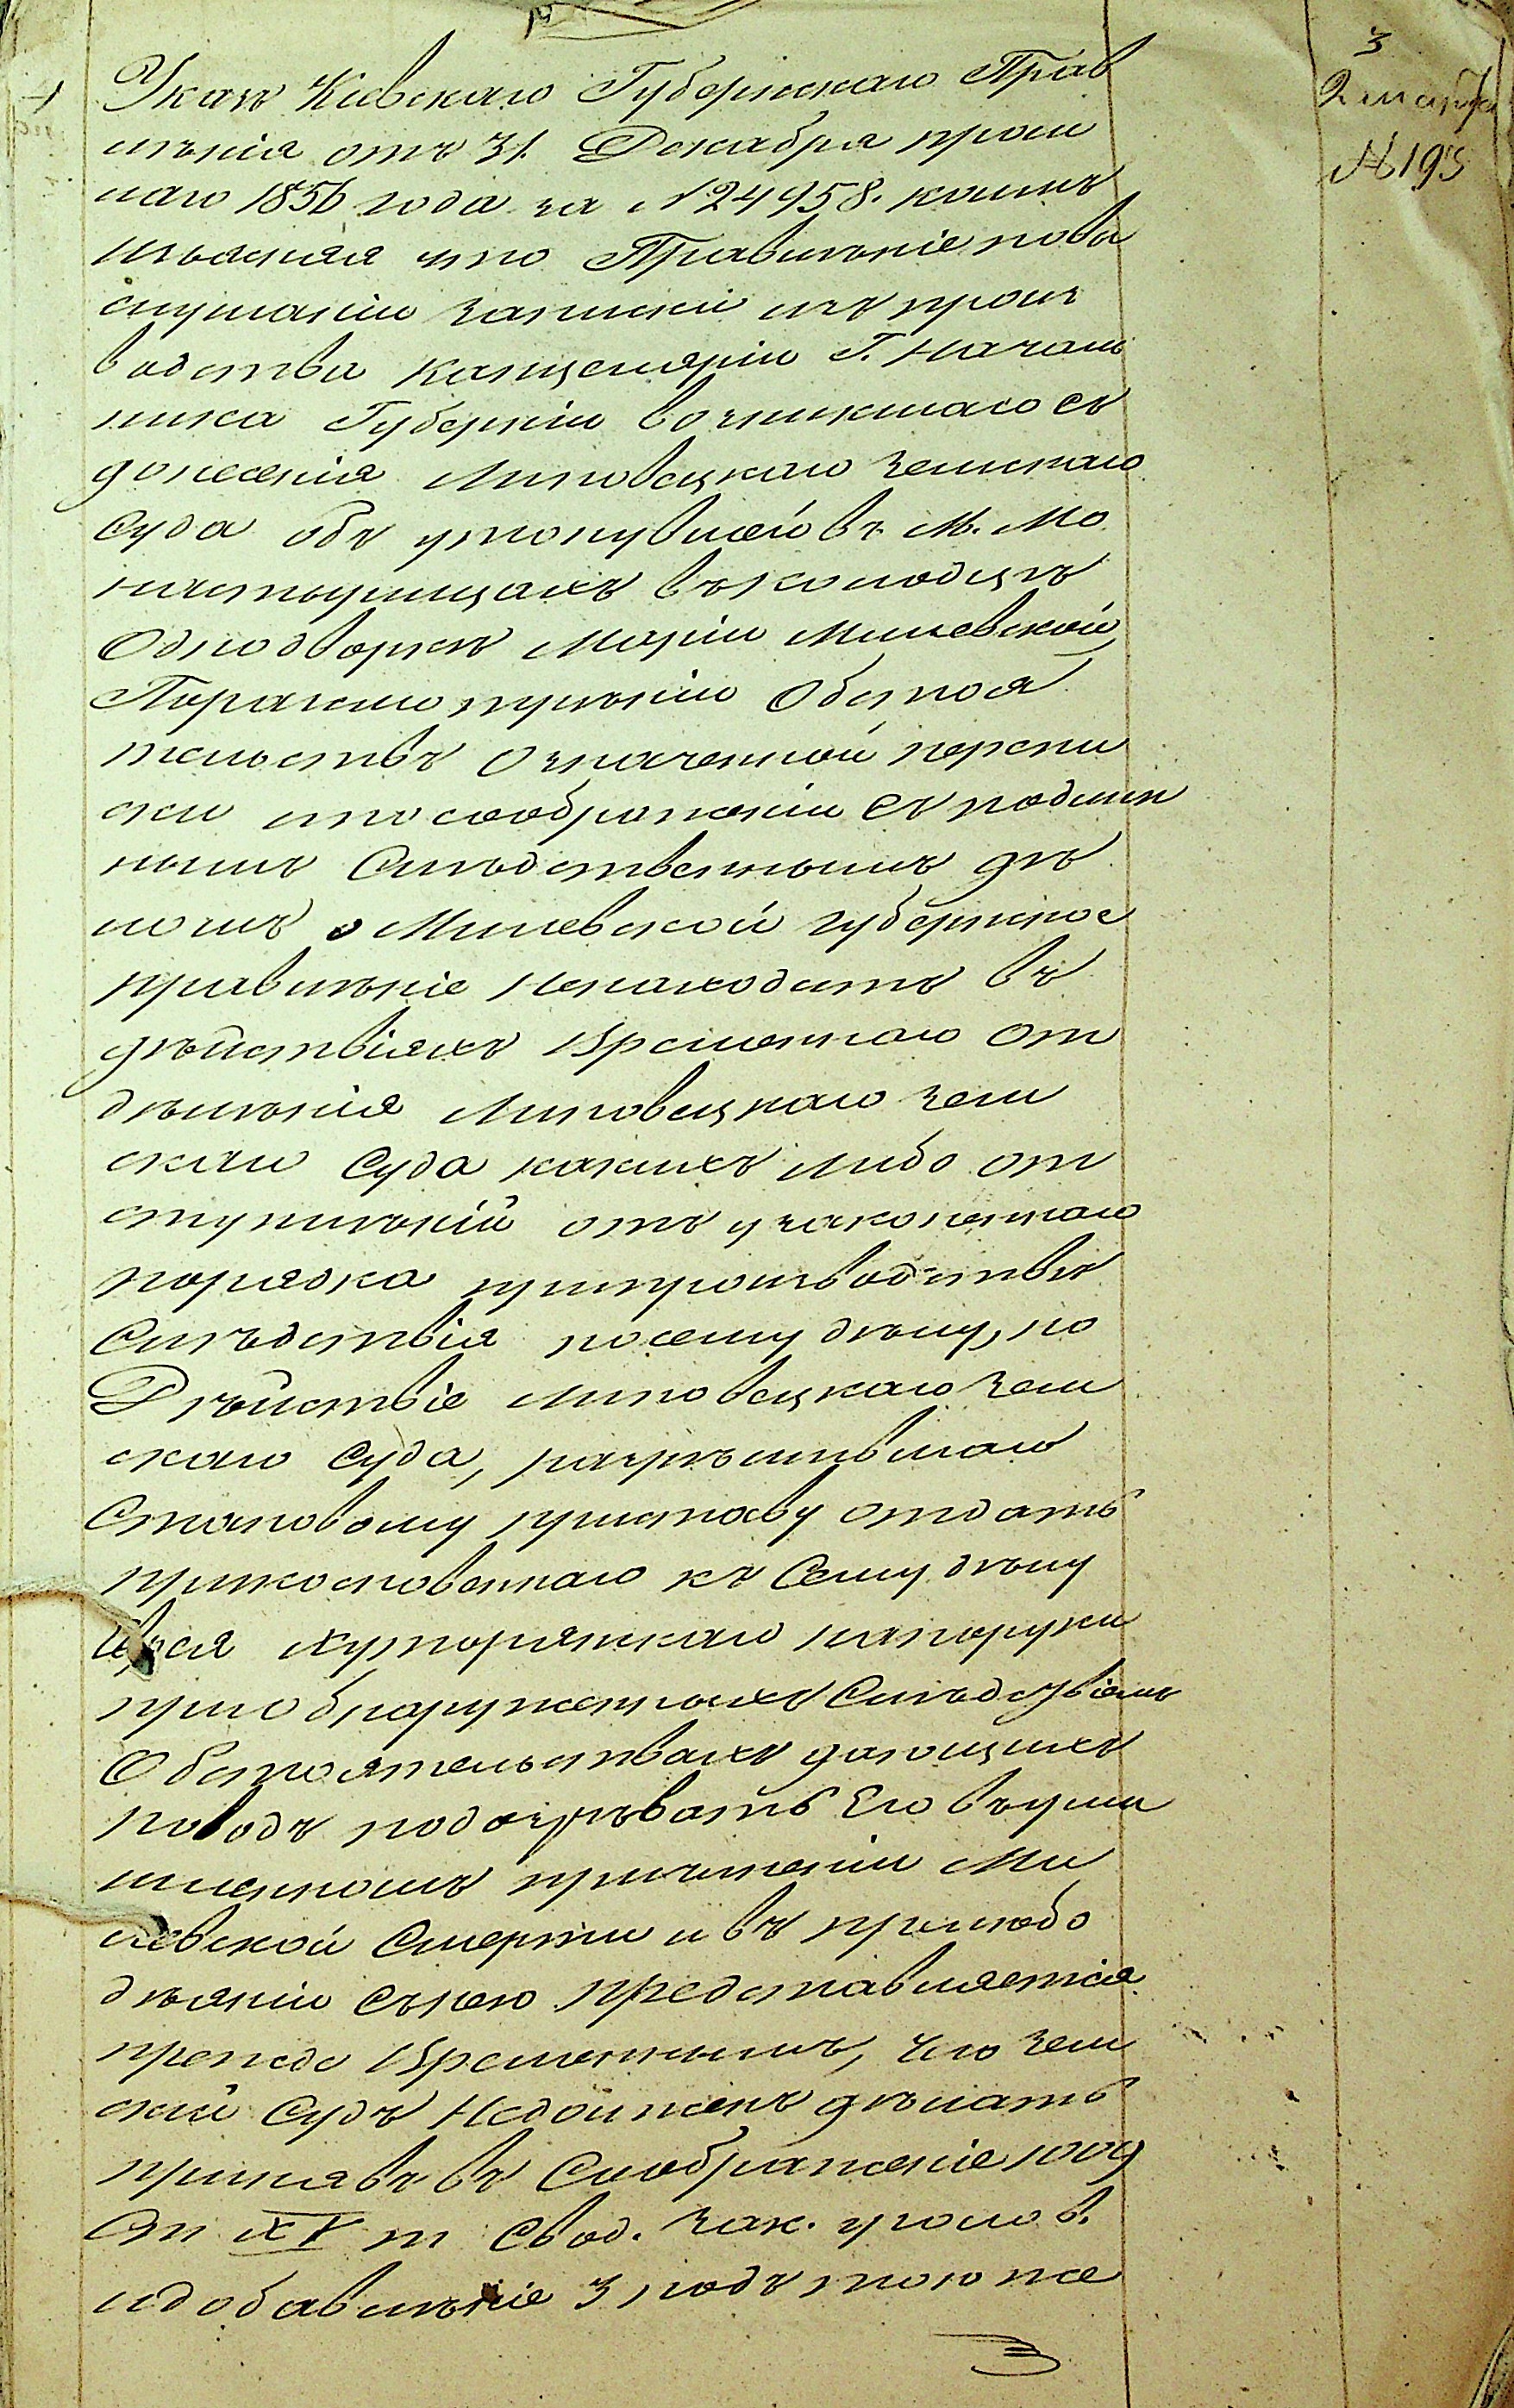 3
2 марта
№ 195
Указъ Кіевскаго Губернскаго Прав
лѣнія отъ 31. Декабря прош
лаго 1856 года за № 24958. коимъ
изъясняя что Правлѣніе повы
слушаніи записки изъ произ
водства Канцеляріи Г. Началь
ника Губерніи возникшаго съ
донесенія Липовецкаго Земскаго
Суда объ утонувшей въ М. Мо
настырищахъ въ колодцѣ
Однодворкѣ Маріи Милевской,
Поразсмотрѣнію Обстоя
тельствъ означенной перепи
ски ипосоображеніи съ подлин
нымъ Слѣдственнымъ дѣ
ломъ о Милевской губернское
правлѣніе ненаходитъ въ
дѣйствіяхъ Временнаго От
дѣлѣнія Липовецкаго Зем
скаго Суда какихъ либо от
ступлѣній отъ узаконеннаго
порядка припроизводствѣ
Слѣдствія посему дѣлу, но
Дѣйствіе Липовецкаго Зем
скаго Суда, разрѣшившаго
Становому приставу отдать
прикосновеннаго къ Сему дѣлу
Хуторянскаго напоруки
приобнаруженныхъ Слѣдствіемъ
Обстоятельствахъ дающихъ
поводъ подозрѣвать Его въумы
шленномъ причиненіи Ми
левской Смерти и въ прелюбо
дѣяніи съ нею представляется
прежде Временнымъ, чего Зем
скій Судъ Недолженъ дѣлать
принявъ въ Соображеніе 1009
Ст XV т Свод. Зак. уголов.
идобавлѣніе 3 подъ тою же